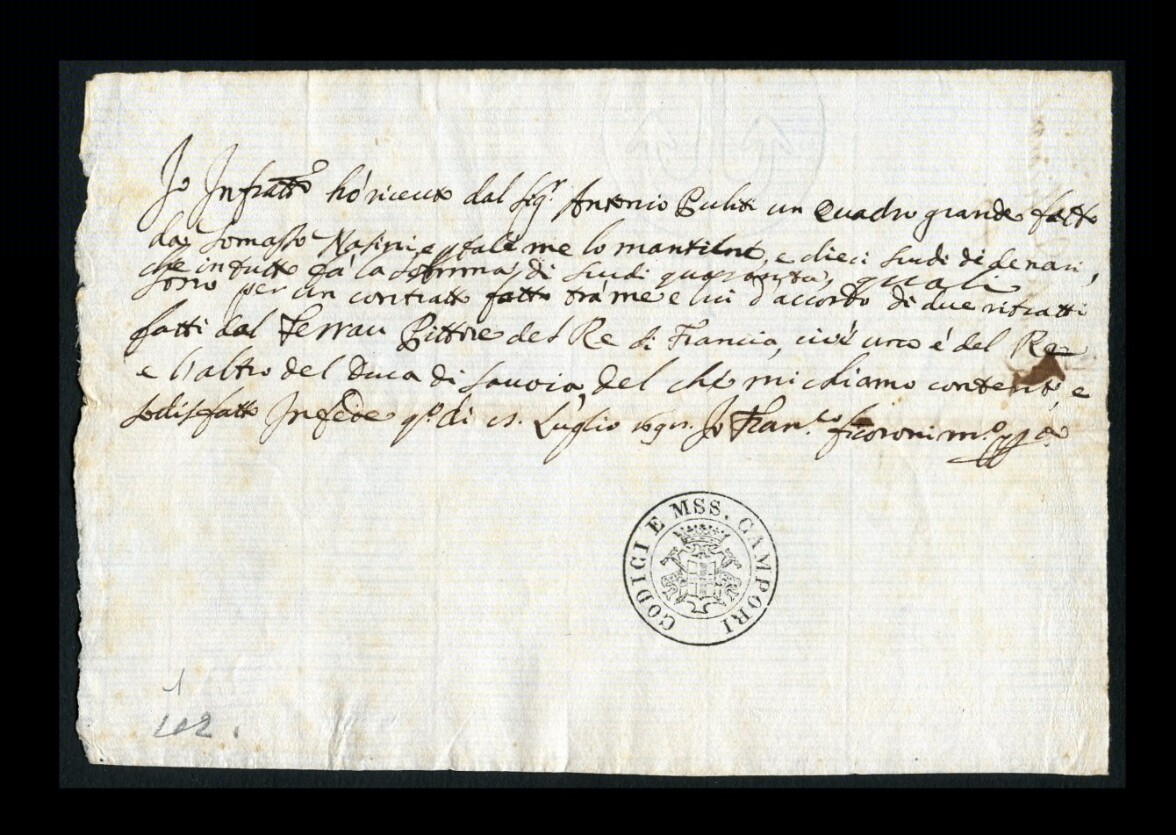 Io Infratto. hò riceuto dal Sig.r Antonio Puliti un Quadro grande fatto
da Tomasso Nasini, e p tale me lo mantiene, e dieci scudi di denari,
che in tutto fà la somma, di scudi quaranta, quali
sono per un contratto fatto trà me e lui d'accordo di due ritratti
fatti dal Ferrau Pittore del Re di Francia, cioè uno è del Re
e l'altro del Duca di Savoia, del che mi chiamo contento, e
sodisfatto In fede q.o di Luglio Io Fran.co ficoroni m.o pp.a
CODICI E MSS. CAMPORI
1
102.